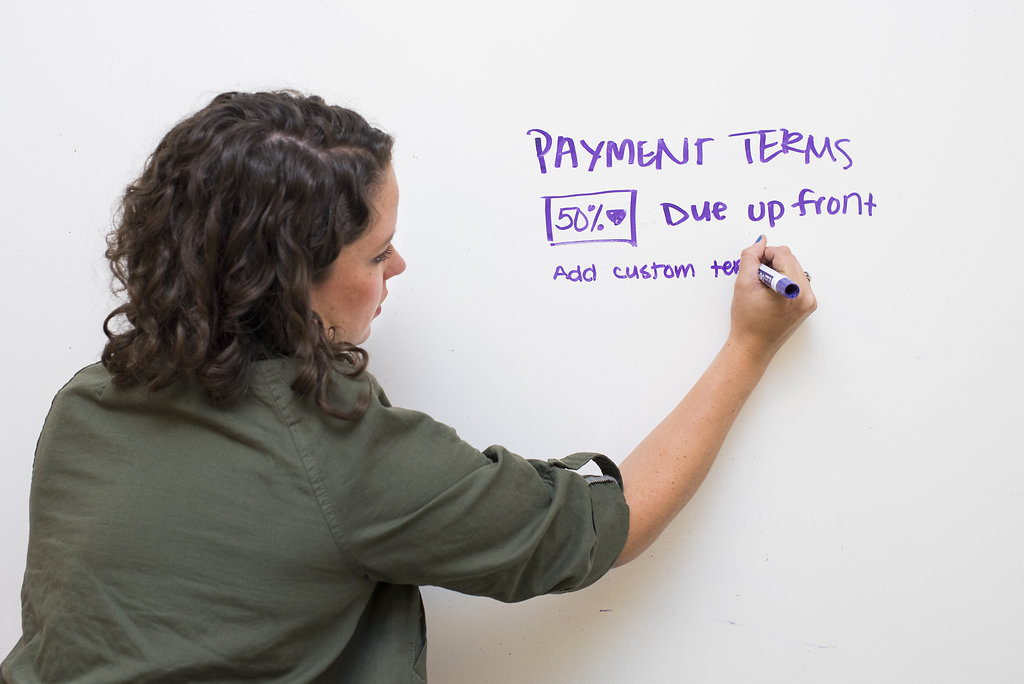 PAYMENT TERMS
50% Due upfront
Add custom